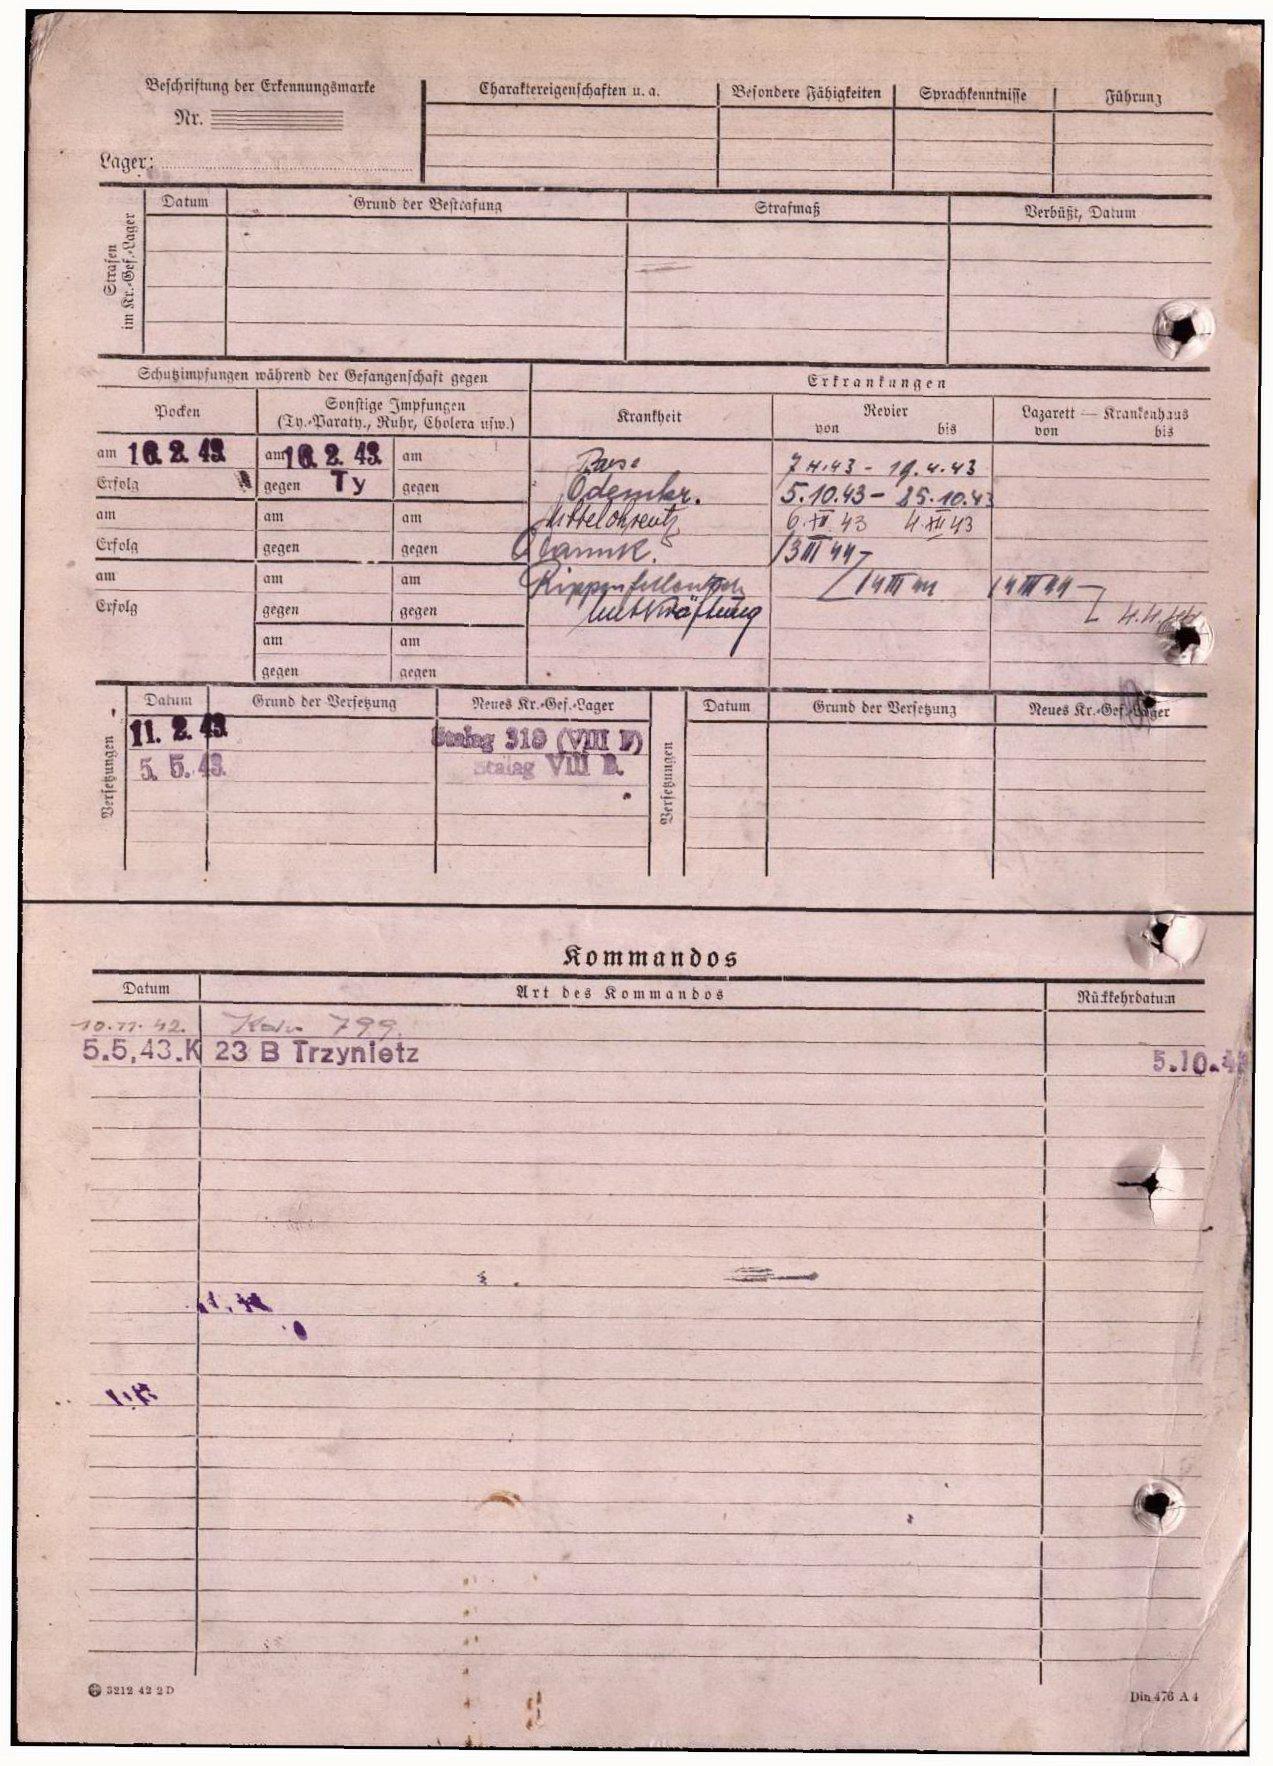 Beschriftung der Erkennungsmarke
Nr.
Lager:
Charaktereigenschaften u. a.
Besondere Fähigkeiten
Sprachkenntnisse
Führung
Strafen
im Kr.-Gef.-Lager
Datum
Grund der Bestrafung
Strafmaß
Verbüßt, Datum
Schutzimpfungen während der Gefangenschaft gegen
Erkrankungen
Pocken
Sonstige Impfungen
(Ty.-Paraty., Ruhr, Cholera usw.)
Krankheit
Revier
von bis
Lazarett — Krankenhaus
von bis
am 16. 2. 43. am 16. 2. 43. am
7.4.43 - 19.4.43
Erfolg gegen Ty gegen
Ödemkr. 5.10.43 - 25.10.43
am am am
Mittelohrentz. 6.XII 43 4.XII 43
Erfolg gegen gegen
13 III 44
am am am
14 III 44 14 III 44
Erfolg gegen gegen
am am
gegen gegen
Versetzungen
Datum Grund der Versetzung Neues Kr.-Gef.-Lager
11. 2. 43 Stalag 318 (VIII F)
5. 5. 43. Stalag VIII B.
Versetzungen
Datum Grund der Versetzung Neues Kr.-Gef.-Lager
Kommandos
Datum Art des Kommandos Rückkehrdatum
10.11.42. 799.
5.5,43.K 23 B Trzynietz 5.10.
3212 42 2 D
Din 476 A 4